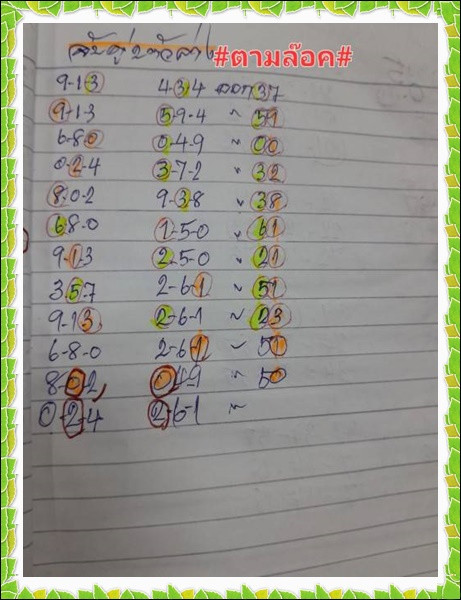 จับคู่ 2 ตัวล่าง #ตามล๊อค#
9-13 4-3-4 ออก 37
9-1-3 5-9-4 " 59
6-8-0 0-4-9 " 00
0-2-4 3-7-2 " 32
8-0-2 9-3-8 " 38
6-8-0 1-5-0 " 61
9-1-3 2-5-0 " 21
3-5-7 2-6-1 " 51
9-13 2-6-1 ~ 23
6-8-0 2-6-1 - 50
8-0-2 0-4-9 " 50
0-2-4 2-6-1 ~